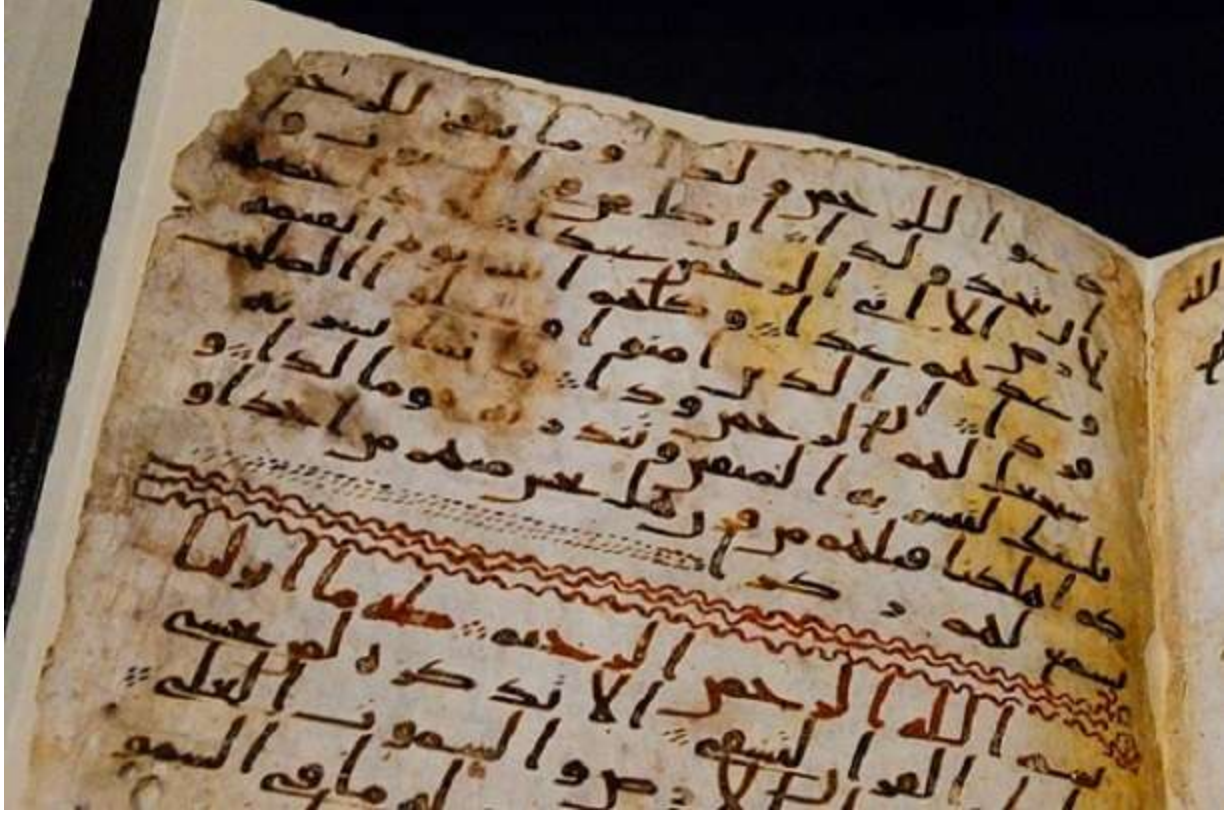 دعوا للرحمن ولدا وما ينبغي للرحمن
ان يتخذ ولدا ان كل من في السموت و
الارض الا اتي الرحمن عبدا لقد احصيهم
وعدهم عدا وكلهم اتيه يوم القيمه
فردا ان الذين امنوا وعملوا الصلحت
سيجعل لهم الرحمن ودا فانما يسرنه
بلسنك لتبشر به المتقين وتنذر به قوما لدا و
كم اهلكنا قبلهم من قرن هل تحس منهم من احد او
تسمع لهم ركزا
بسم الله الرحمن الرحيم طه ما انزلنا
عليك القران لتشقى الا تذكره لمن يخشى
الارض والسموت العلى
له ما في السمو